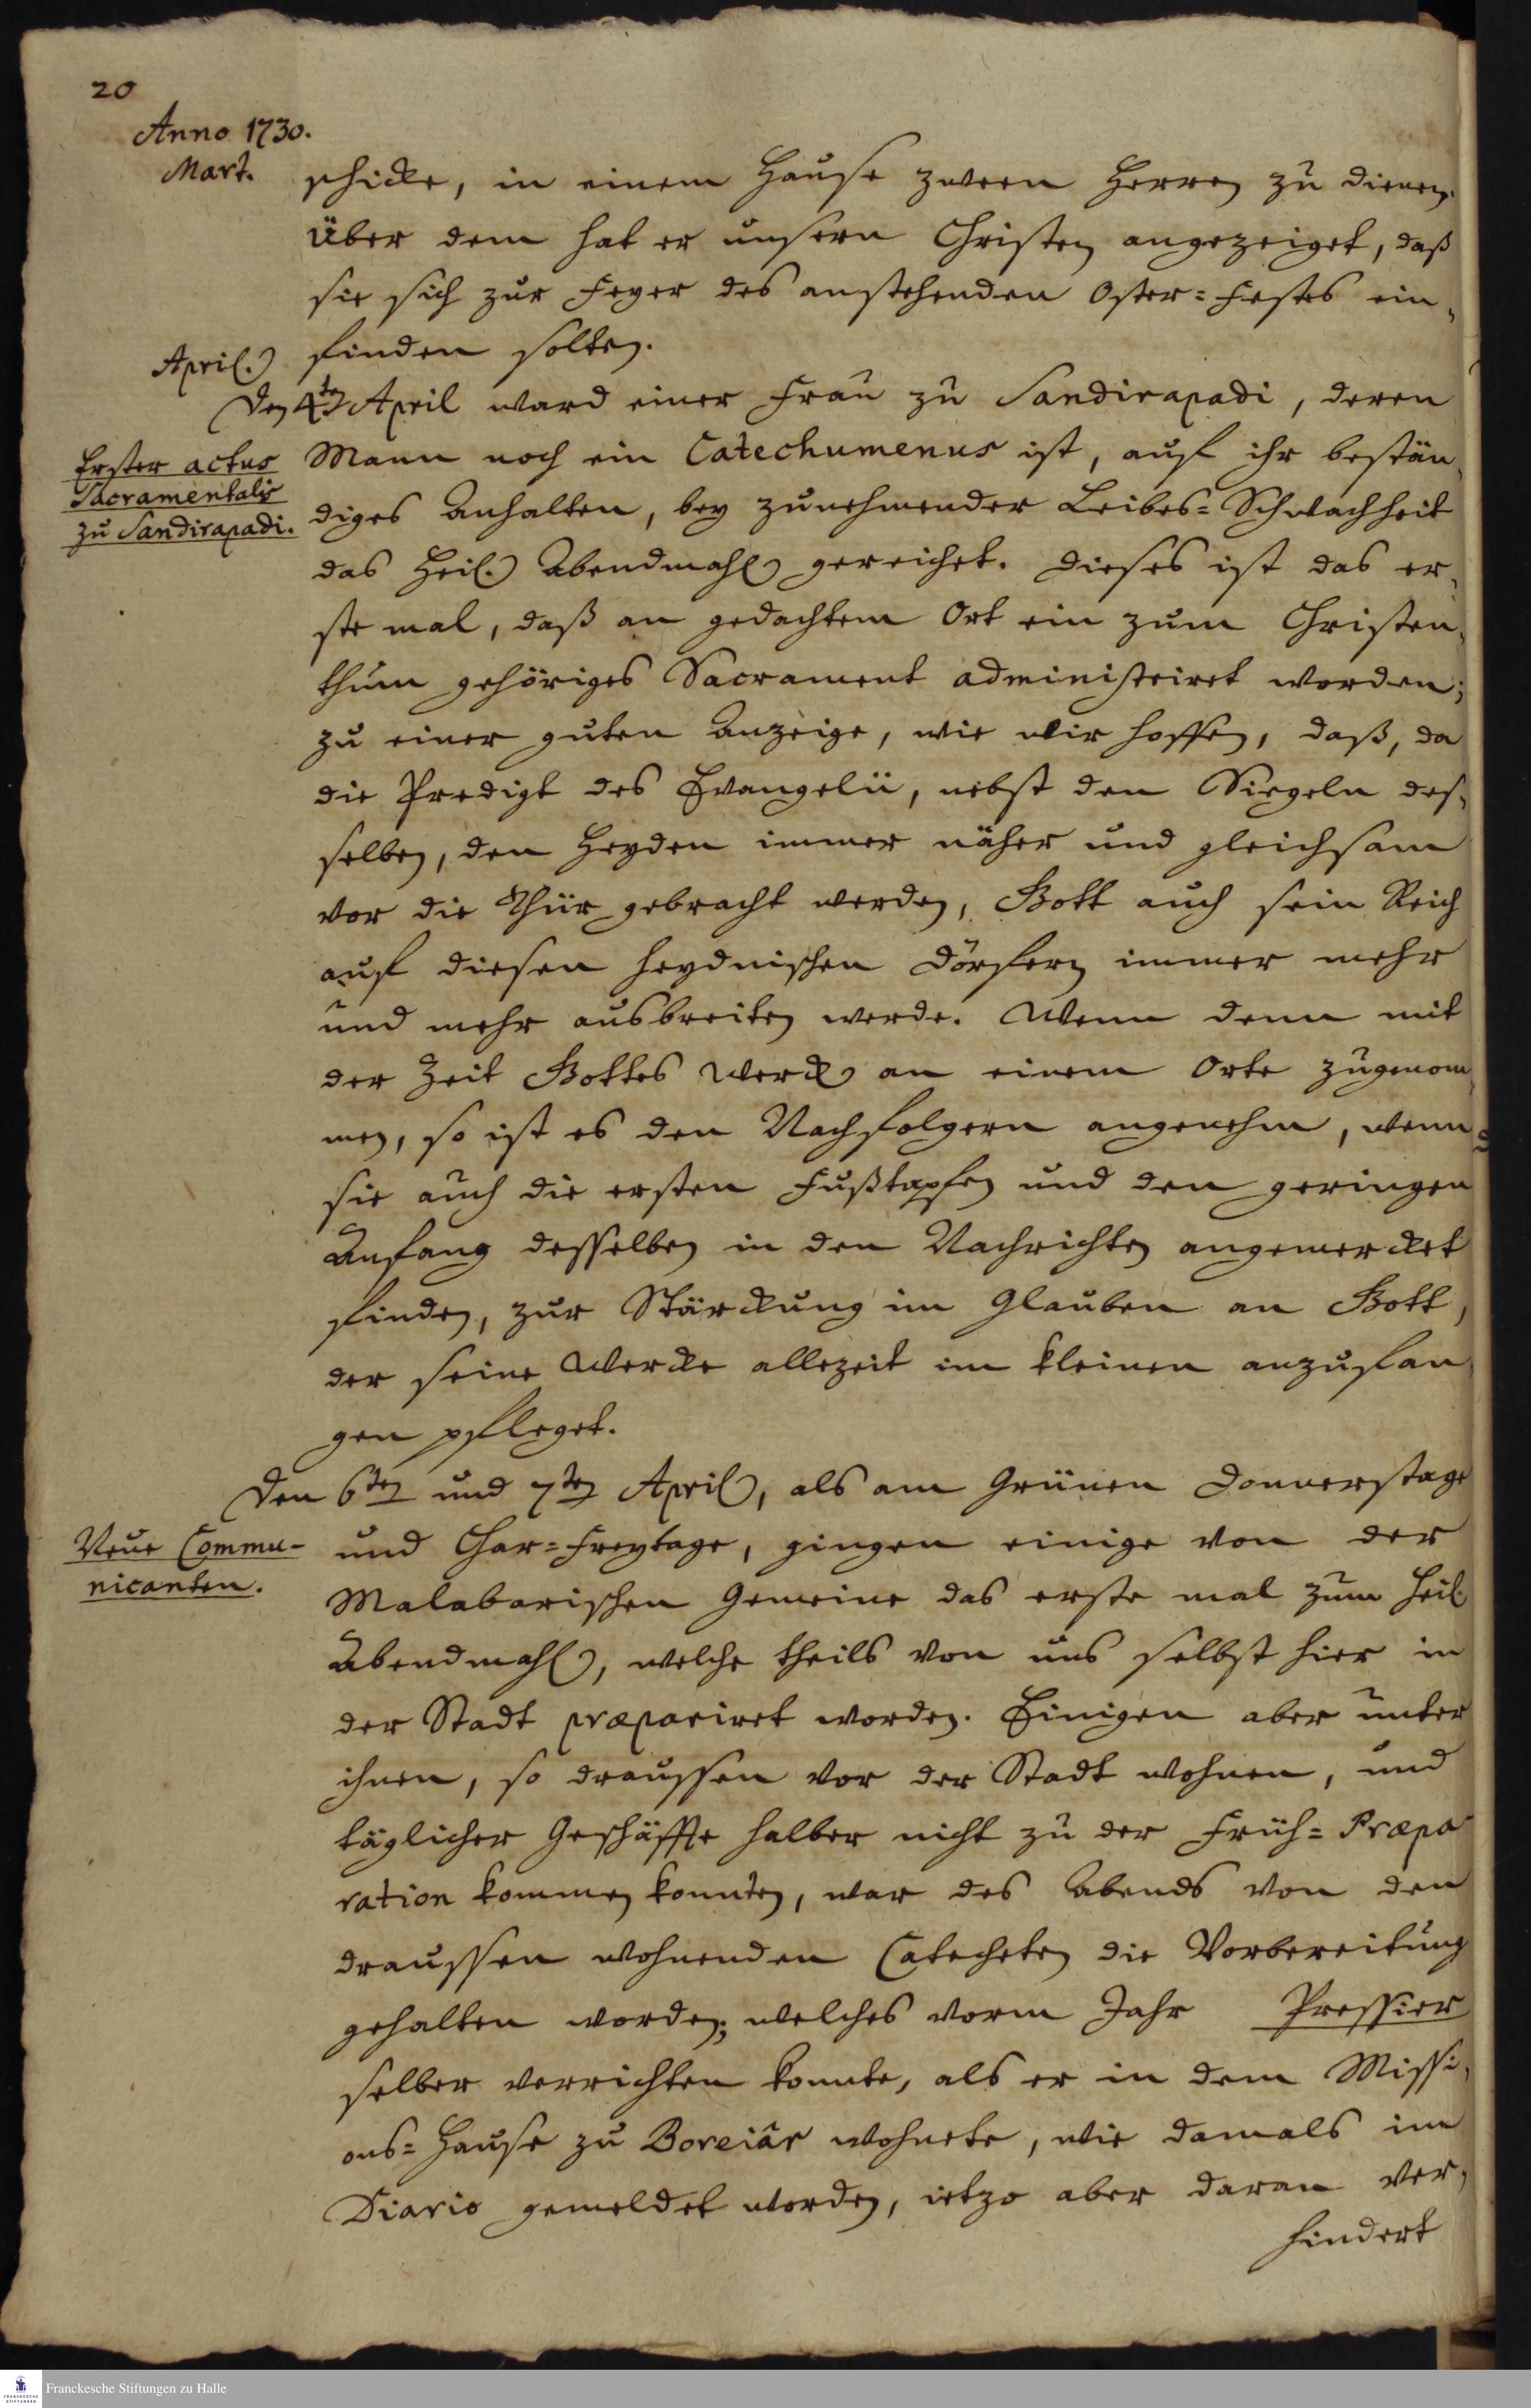 20
Anno 1730.
Mart.
schicke, in einem Hause zween Herren zu dienen.
Über dem hat er unsern Christen angezeiget, daß
sie sich zur Feyer des anstehenden Oster=Festes ein,
finden solten.
April.
Den 4ten April ward einer Frau zu Sandirapadi, deren
Erster actus
Sacramentalis
zu Sandirapadi.
Mann noch ein Catechumenus ist, auf ihr bestän,
diges Anhalten, bey zunehmender Leibes=Schwachheit
das Heil. Abendmahl gereichet. Dieses ist das er,
ste mal, daß an gedachtem Ort ein zum Christen,
thum gehöriges Sacrament administriret worden;
zu einer guten Anzeige, wie wir hoffen, daß, da
die Predigt des Evangelii, nebst den Siegeln des,
selben, den Heyden immer näher und gleichsam
vor die Thür gebracht werden, Gott auch sein Reich
auf diesen heydnischen Dörfern immer mehr
und mehr ausbreiten werde. Wenn denn mit
der Zeit Gottes Werck an einem Orte zugenom,
men, so ist es den Nachfolgern angenehm, wenn
sie auch die ersten Fußtapfen und den geringen
Anfang desselben in den Nachrichten angemercket
finden, zur Stärckung im Glauben an Gott,
der seine Wercke allezeit im kleinen anzufan
gen pfleget.
Den 6ten und 7ten April, als am Grünen Donnerstage
Neue Commu-
nicanten.
und Char=Freytage, gingen einige von der
Malabarischen Gemeine das erste mal zum Heil.
Abendmahl, welche theils von uns selbst hier in
der Stadt præpariret worden. Einigen aber unter
ihnen, so draussen vor der Stadt wohnen, und
täglicher Geschäffte halber nicht zu der Früh=Præpa
ration kommen konnten, war des Abends von den
draussen wohnenden Catecheten die Vorbereitung
gehalten worden; welches vorm Jahr Pressier
selber verrichten konnte, als er in dem Missi,
ons=Hause zu Boreiâr wohnete, wie damals im
Diario gemeldet worden, ietzo aber daran ver,
hindert
Franckesche Stiftungen zu Halle